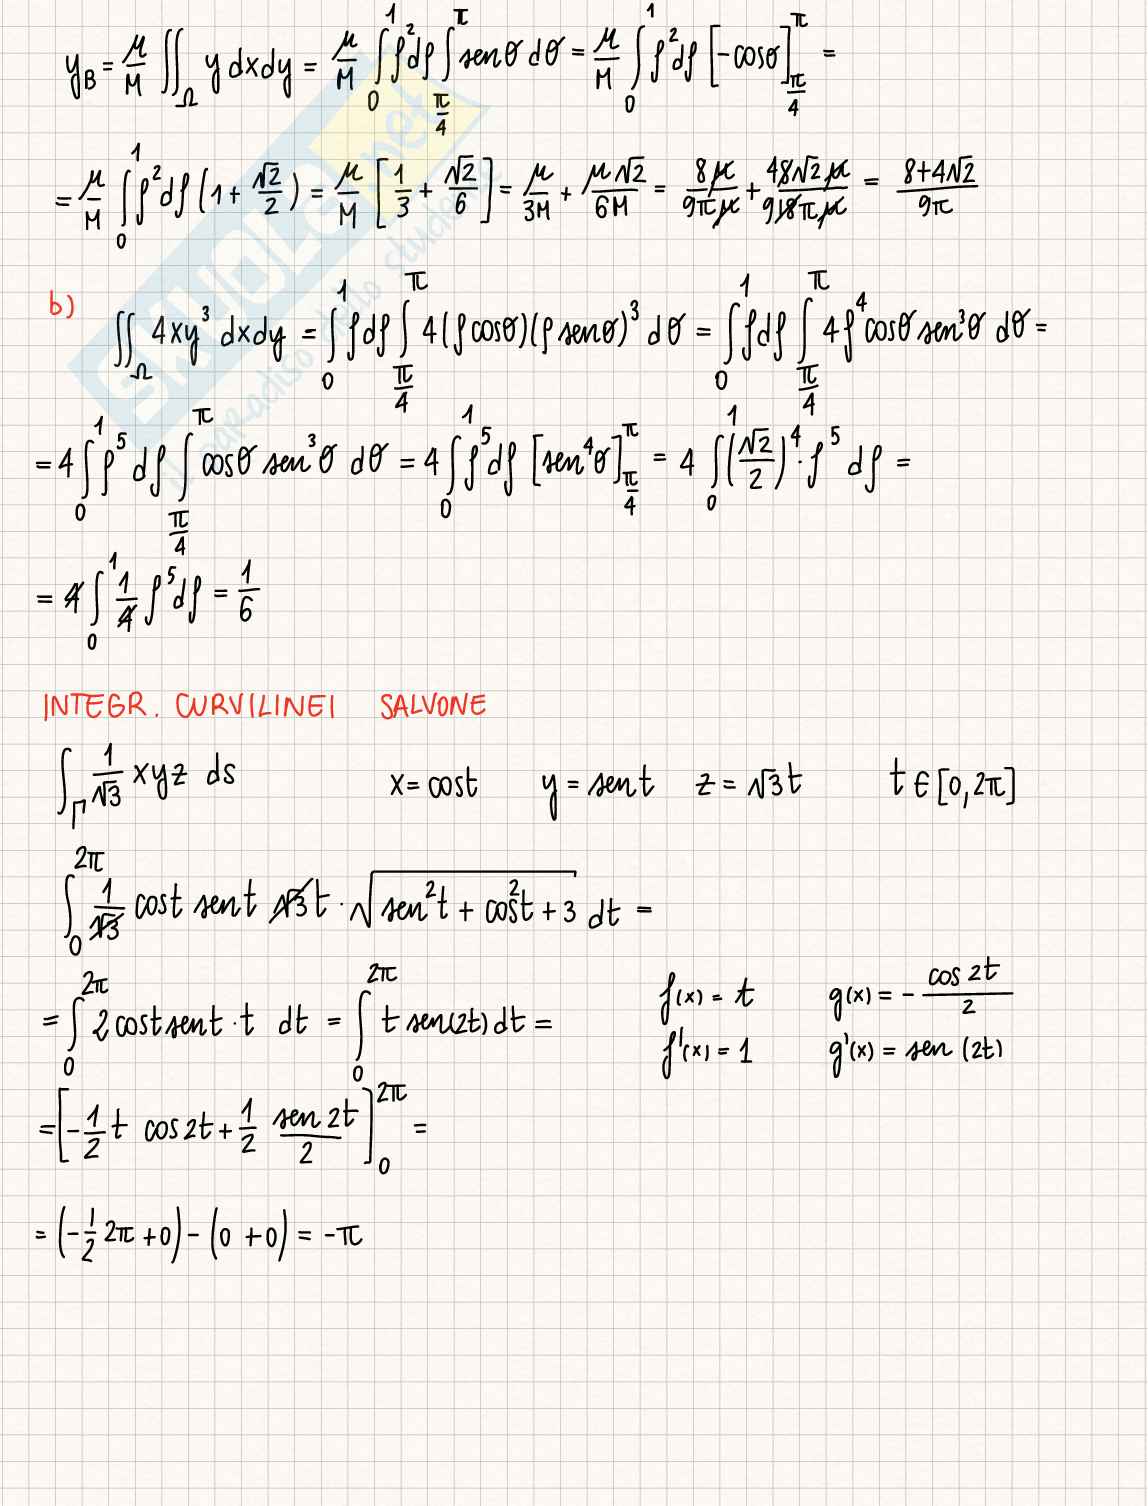 y_B = μ/M ∬_Ω y dxdy = μ/M ∫_0^1 ρ² dρ ∫_{π/4}^π sen θ dθ = μ/M ∫_0^1 ρ² dρ [-cosθ]_{π/4}^π =
= μ/M ∫_0^1 ρ² dρ (1 + √2/2) = μ/M [1/3 + √2/6] = μ/3M + μ√2/6M = 8μ/9πμ + 48√2μ/918πμ = 8+4√2/9π
b) ∬_Ω 4xy³ dxdy = ∫_0^1 ρdρ ∫_{π/4}^π 4(ρcosθ)(ρ senθ)³ dθ = ∫_0^1 ρdρ ∫_{π/4}^π 4ρ⁴ cosθ sen³θ dθ =
= 4 ∫_0^1 ρ⁵ dρ ∫_{π/4}^π cosθ sen³θ dθ = 4 ∫_0^1 ρ⁵ dρ [sen⁴θ]_{π/4}^π = 4 ∫_0^1 (√2/2)⁴ · ρ⁵ dρ =
= 4 ∫_0^1 1/4 ρ⁵ dρ = 1/6
INTEGR. CURVILINEI SALVONE
∫_Γ 1/√3 xyz ds x = cost y = sent z = √3t t ∈ [0, 2π]
∫_0^{2π} 1/√3 cost sent √3t · √(sen²t + cos²t + 3) dt =
= ∫_0^{2π} 2 cost sent · t dt = ∫_0^{2π} t sen(2t) dt = f(x) = t g(x) = - cos 2t/2
f'(x) = 1 g'(x) = sen (2t)
= [-1/2 t cos2t + 1/2 sen 2t/2]_0^{2π} =
= (-1/2 2π + 0) - (0 + 0) = -π
SKUOLA.net
il paradiso dello studente